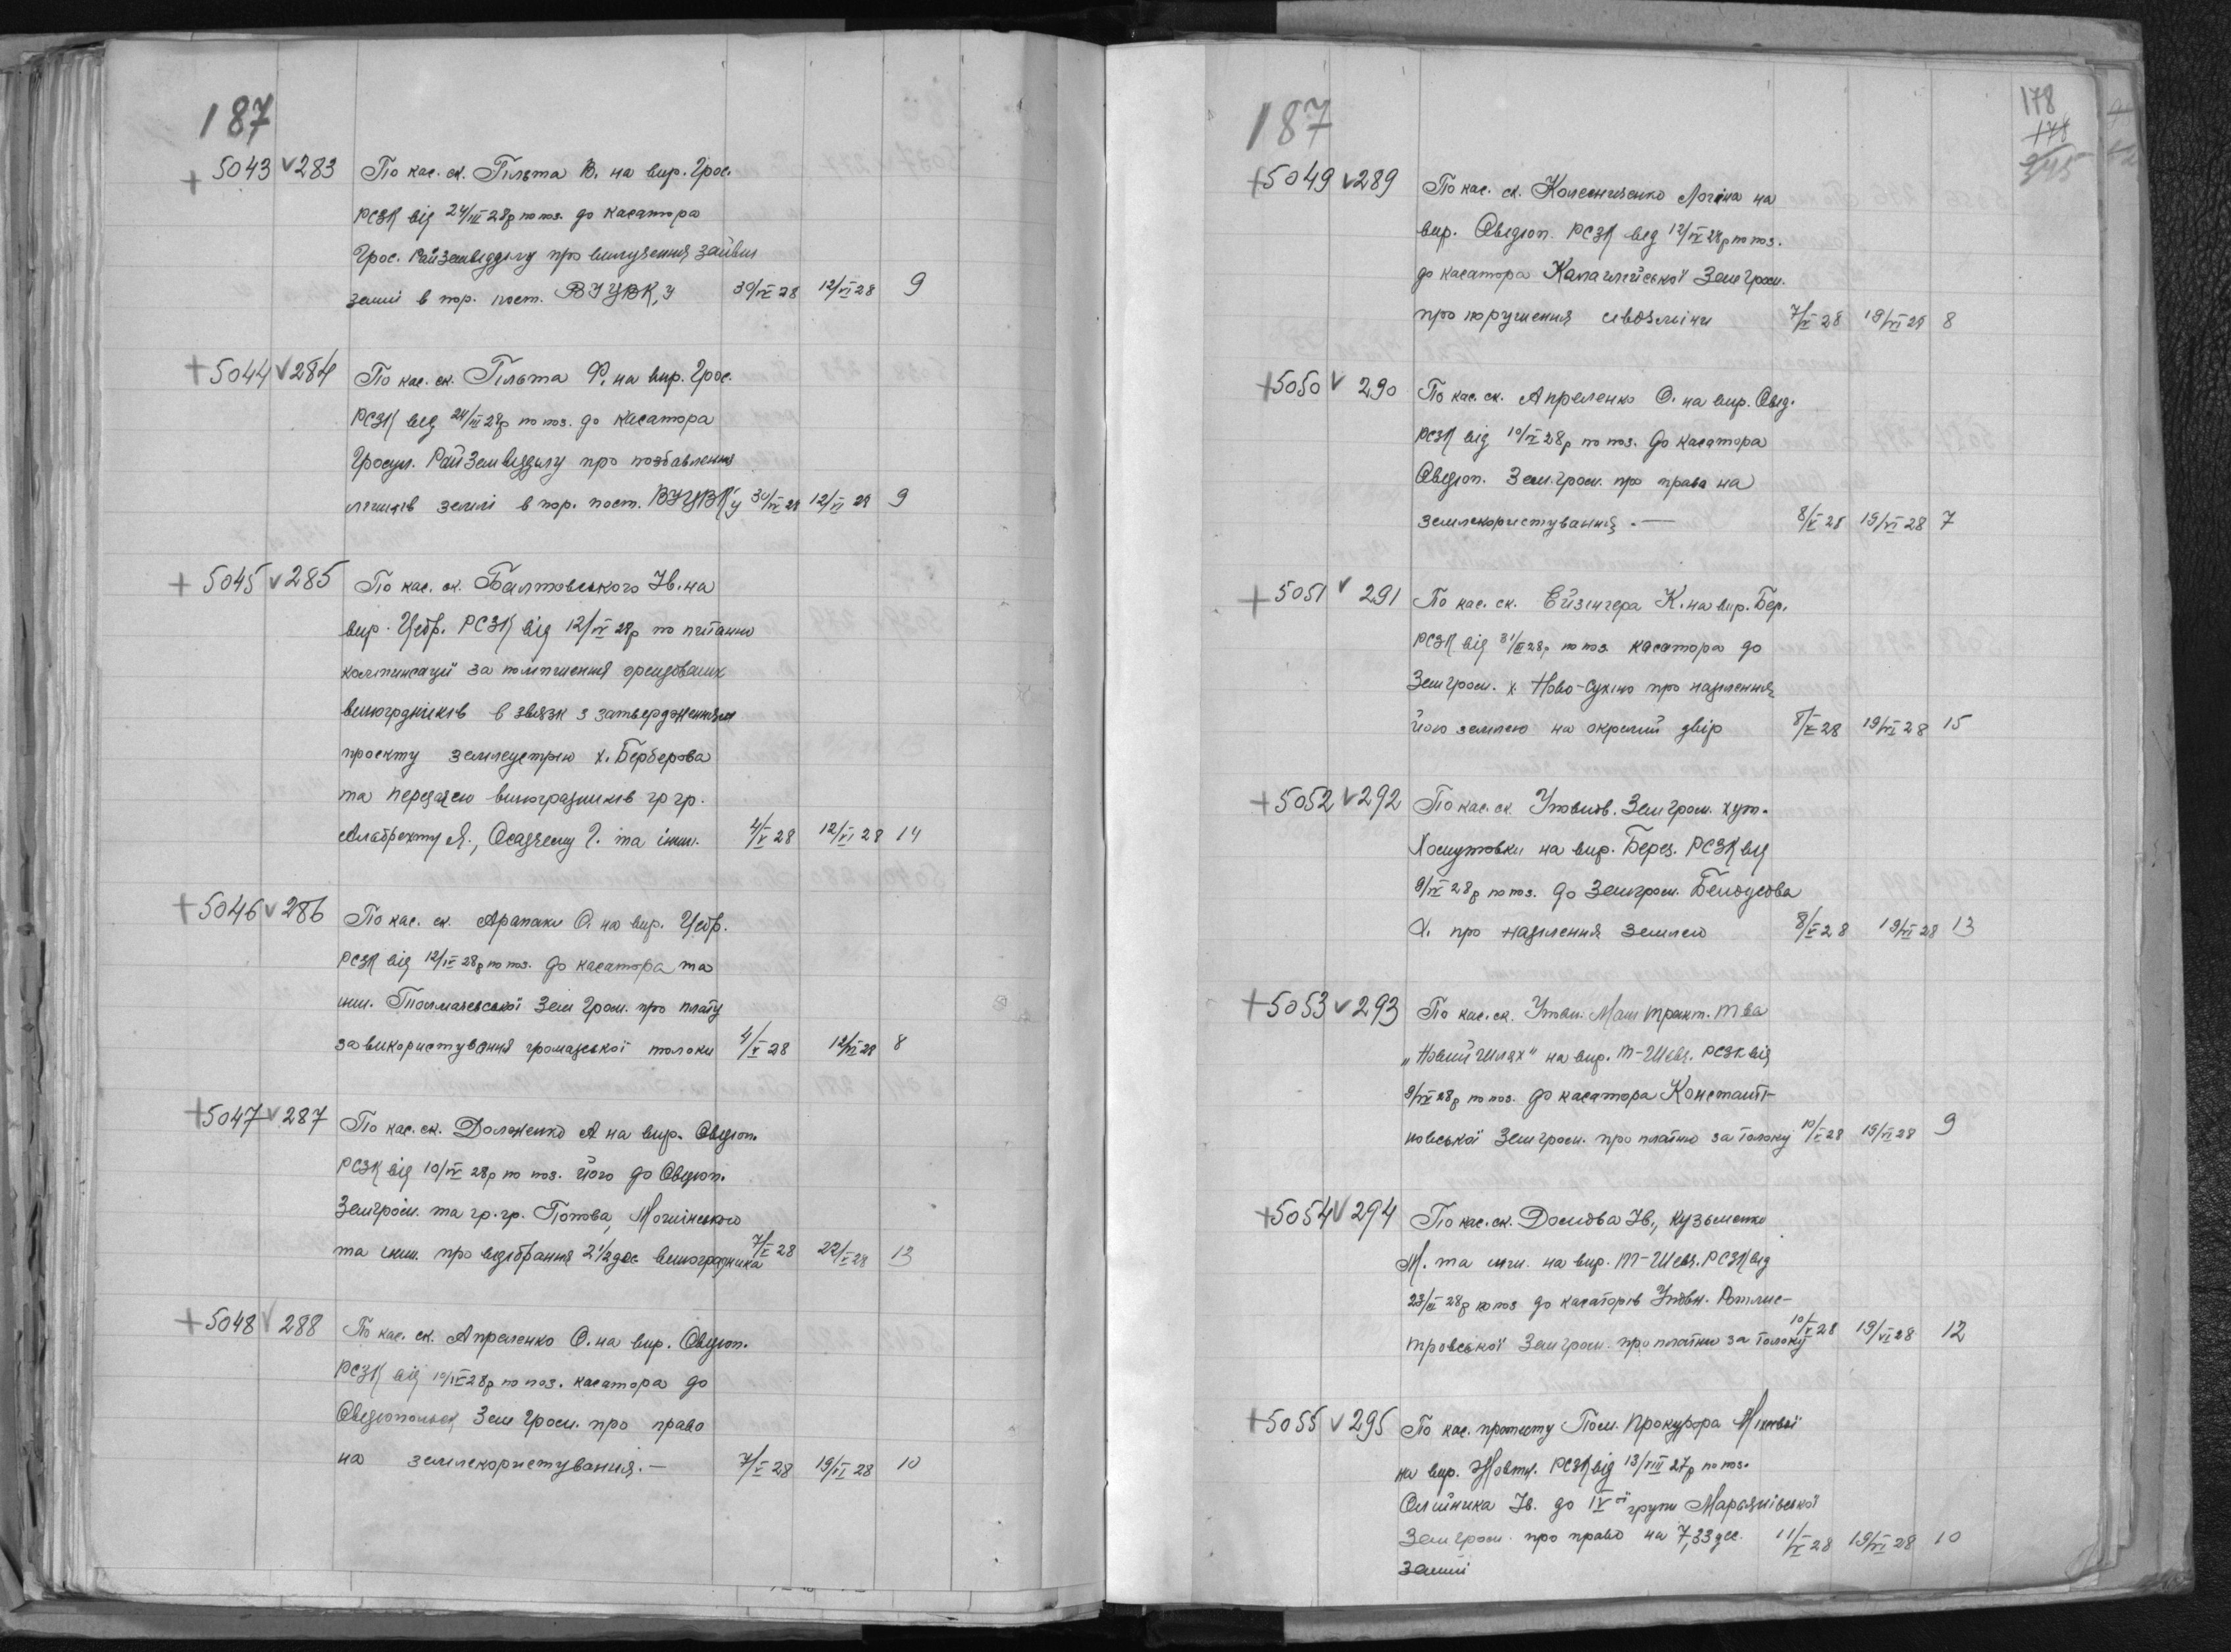 187
+ 5043 v 283 По кас. ск. Гільта В. на вир. Грос.
РСЗК від 24/III 28р по поз. до касатора
Грос. Райземвідділу про вилучення зайвии
землі в пор. пост. ВУЦВК,у 30/IV 28 12/VI 28 9
+ 5044 v 284 По кас. ск. Гільта Ф. на вир. Грос.
РСЗК від 24/III 28р по поз. до касатора
Гросул. РайЗемвідділу про позбавлення
лишків землі в пор. пост. ВУЦВК'у 30/IV 28 12/VI 28 9
+ 5045 v 285 По кас. ск. Балтовського Ів. на
вир. Цебр. РСЗК від 12/IV 28р по питанню
компенсації за поліпшення орендованих
виноградників в звязк з затвердженням
проекту землеустрою х. Берберова
та передачею виноградників гр гр.
Альбрехту Я., Осадчему Г. та інш. 4/V 28 12/VI 28 14
+ 5046 v 286 По кас. ск. Арапаки О. на вир. Цебр.
РСЗК від 12/IV 28р по поз. до касатора та
инш. Тполмачевської Зем Гром. про плату
за використування громадської толоки 4/V 28 12/VI 28 8
+ 5047 v 287 По кас. ск. Долженко А на вир. Овідіоп.
РСЗК від 10/IV 28р по поз. його до Овідіоп.
Земгром. та гр. гр. Попова, Могилінського
та инш. про відібрання 2 1/2 дес виноградника 7/V 28 22/V 28 13
+ 5048 v 288 По кас. ск. Апреленко О. на вир. Овідіоп.
РСЗК від 10/IV 28р по поз. касатора до
Овідіопольск Зем Гром. про право
на землекористування.— 7/V 28 19/VI 28 10
187
178
178
+ 5049 v 289 По кас. ск. Колесниченко Логіна на
вир. Овідіоп. РСЗК від 12/IV 28р по поз.
до касатора Карагліїської Зем Гром.
про порушення сівозміни 7/V 28 19/VI 28 8
+ 5050 v 290 По кас. ск. Апреленко О. на вир. Овід.
РСЗК від 10/IV 28р по поз. до касатора
Овідіоп. Зем. гром. про права на
землекористування.— 8/V 28 19/VI 28 7
+ 5051 v 291 По кас. ск. Ейзінгера К. на вир. Бер.
РСЗК від 31/III 28р по поз касатора до
Зем гром. х Ново- про наділення
його землею на окремий двір 8/V 28 19/VI 28 15
+ 5052 v 292 По кас. ск. Уповнов. Зем гром. хут.
Хомутовки на вир. Берез. РСЗК від
9/IV 28р по поз. до Земгром. Белоусова
Х. про наділення землею 8/V 28 19/VI 28 13
+ 5053 v 293 По кас. ск. Уповн. Маш тракт. Т ва
„Новий шлях" на вир. Т-Шевч. РСЗК від
9/IV 28р по поз. до касатора Константі-
новської Зем гром. про платню за толоку 10/V 28 19/VI 28 9
+ 5054 v 294 По кас. ск. Домова Ів., Кузьменко
М. та инш. на вир. Т-Шевч. РСЗК від
23/III 28р по поз до касаторів Уповн.
тровської Зем гром. про платню за толоку 10/V 28 19/VI 28 12
+ 5055 v 295 По кас. протесту Пом. Прокурора
на вир. Жовтн. РСЗК від 13/VIII 27р по поз.
Олійника Ів. до IV ої групи Марьянівської
Зем гром. про право на 7,33 дес. 11/V 28 19/VI 28 10
землі